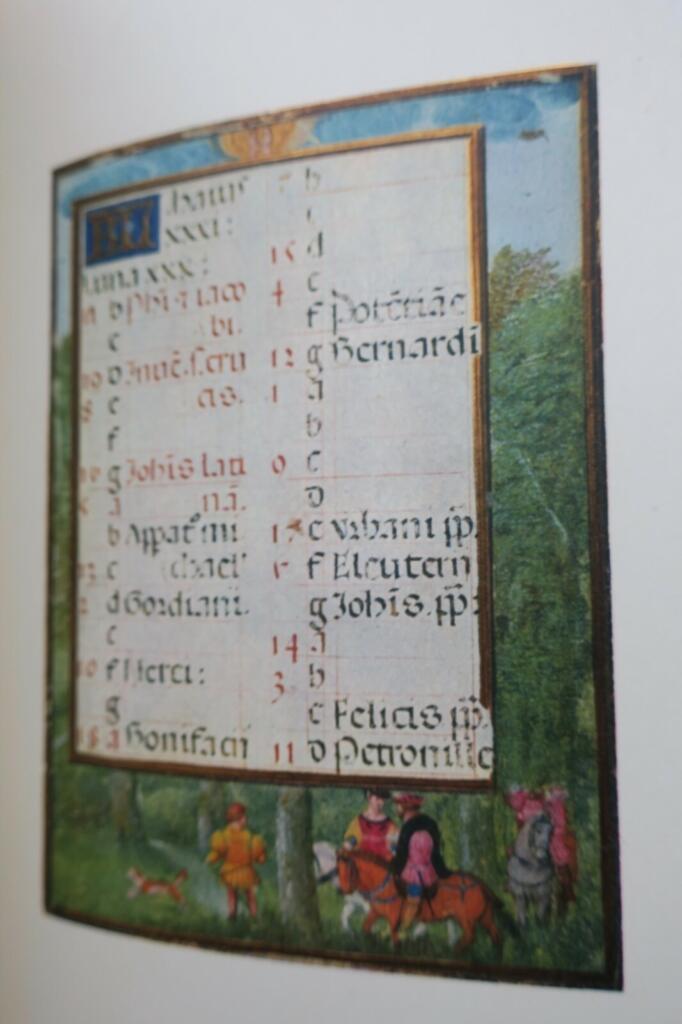 xxxi:
luna xxx:
b Phi. z iaco
c bi.
D Inuē. s. cru
e cis.
f
g Joh̄is lati
a nā.
b Appat mi
c chael'
d Gordiani.
e
10 f Nerei:
g
a Bonifacii
b
15 d
4 e
f Potētiāe
12 g Bernardi
1 a
b
9 c
D
17 e Vrbani pp.
f Eleuterii
g Joh̄is. pp:
14 a
3 b
c Felicis pp.
11 D Petronille